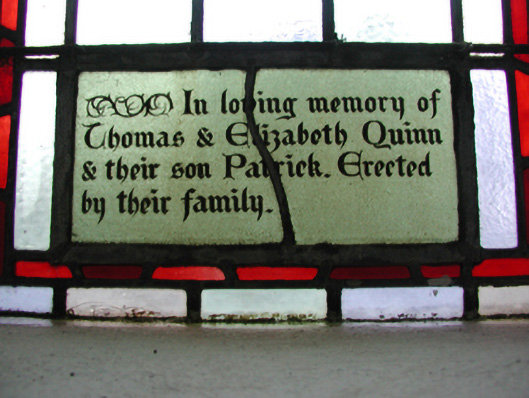 In loving memory of
Thomas & Elizabeth Quinn
& their son Patrick. Erected
by their family.